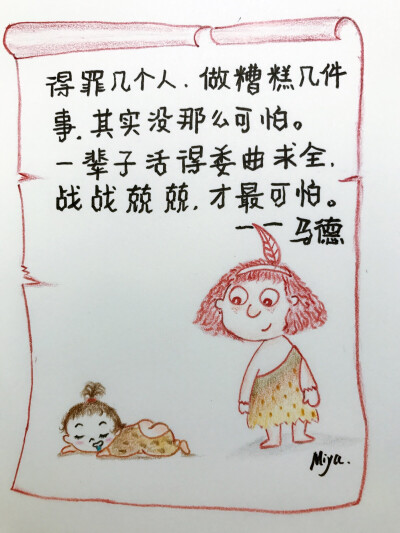 得罪几个人.做糟糕几件
事.其实没那么可怕。
一辈子活得委曲求全.
战战兢兢.才最可怕。
——马德
Miya.